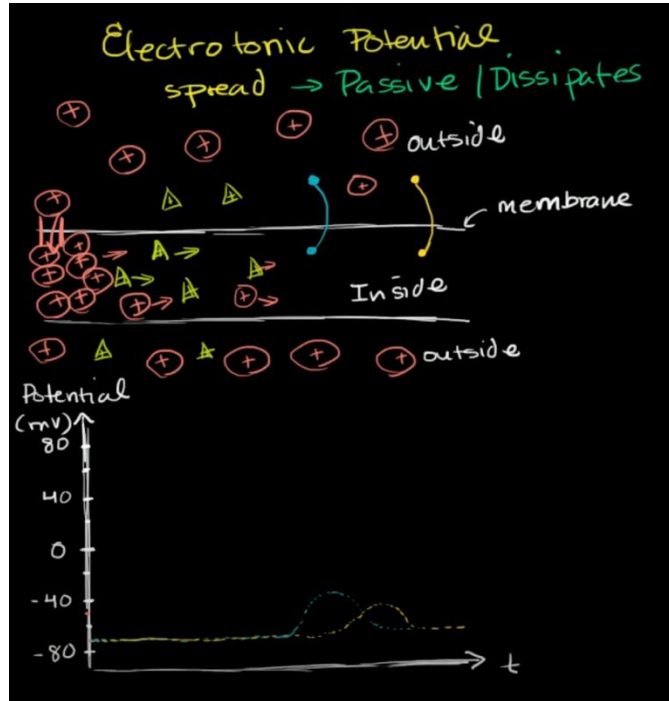 Electrotonic Potential
spread → Passive / Dissipates
outside
membrane
Inside
outside
Potential
(mv)
80
40
0
-40
-80
t